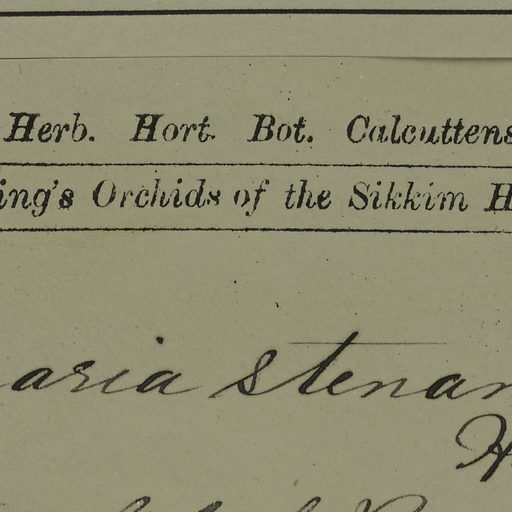 Herb. Hort. Bot. Calcuttens
ing's Orchids of the Sikkim H
aria stenan
H